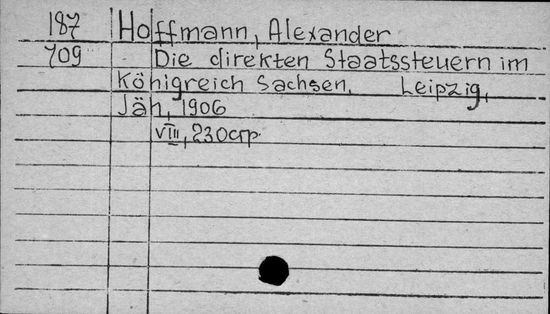 187 Hoffmann, Alexander
709 Die direkten Staatssteuern im
Köhigreich Sachsen. Leipzig,
Jäh, 1906
VIII, 230 стр.